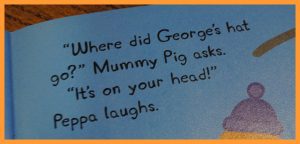 "Where did George's hat
go?" Mummy Pig asks.
"It's on your head!"
Peppa laughs.